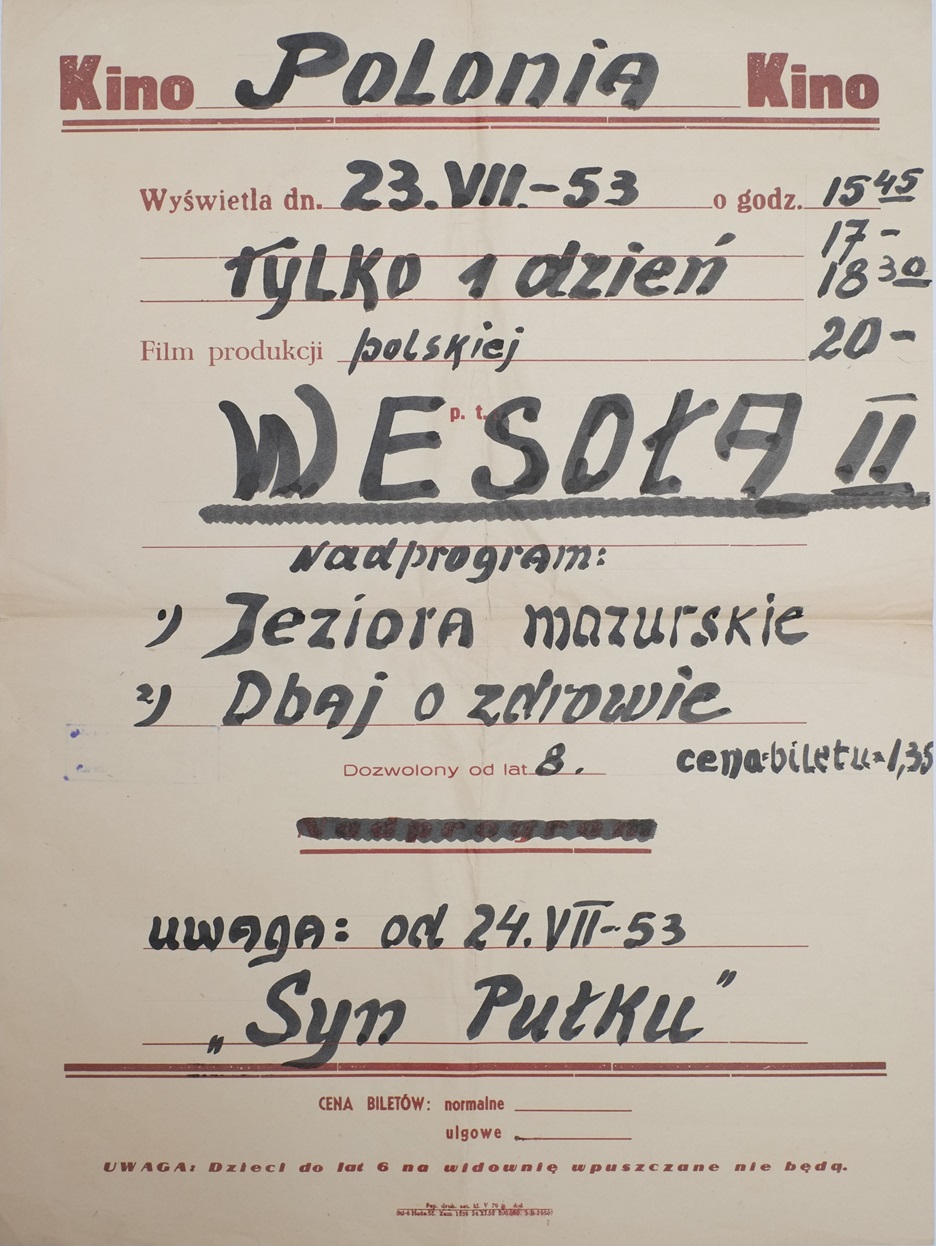 Kino Polonia Kino
Wyświetla dn. 23.VII.-53 o godz. 15 45
17 -
Tylko 1 dzień 18 30
Film produkcji polskiej 20 -
p. t.
WESOŁA II
Nadprogram:
1) Jeziora mazurskie
2) Dbaj o zdrowie
Dozwolony od lat 8. cena biletu = 1,35
Nadprogram
uwaga: od 24.VII-53
„Syn Pułku”
CENA BILETÓW: normalne
ulgowe
UWAGA: Dzieci do lat 6 na widownię wpuszczane nie będą.
Pap. druk. sat. kl. V 70 g.